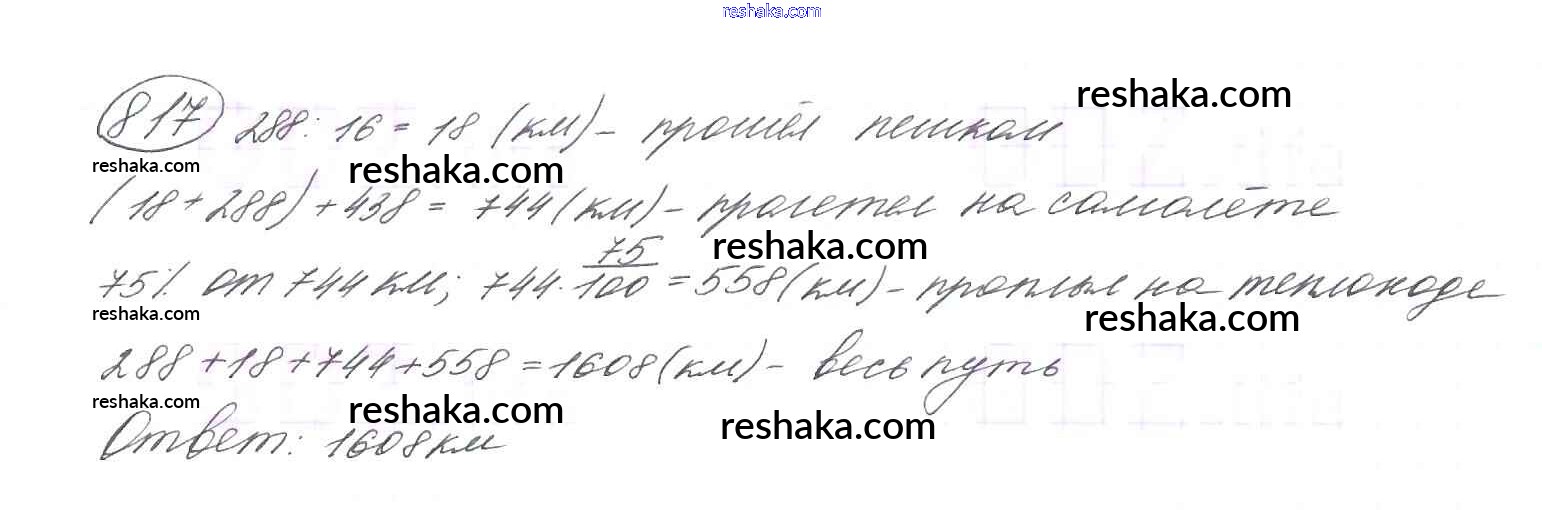 reshaka.com
817 288 : 16 = 18 (км) – прошёл пешком
reshaka.com
reshaka.com
reshaka.com
(18 + 288) + 438 = 744 (км) – пролетел на самолёте
reshaka.com
75% от 744 км; 744 · 75/100 = 558 (км) – проплыл на теплоходе
reshaka.com
reshaka.com
288 + 18 + 744 + 558 = 1608 (км) – весь путь
reshaka.com
reshaka.com
reshaka.com
Ответ: 1608 км